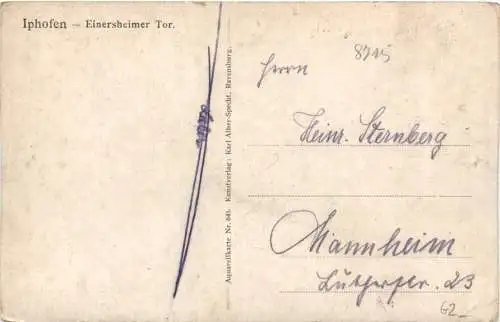 Iphofen – Einersheimer Tor.
Aquarellkarte Nr. 645. Kunstverlag: Karl Alber-Specht, Ravensburg.
8915
Herrn
Heinr. Sternberg
Mannheim
Lutherstr. 23
62_